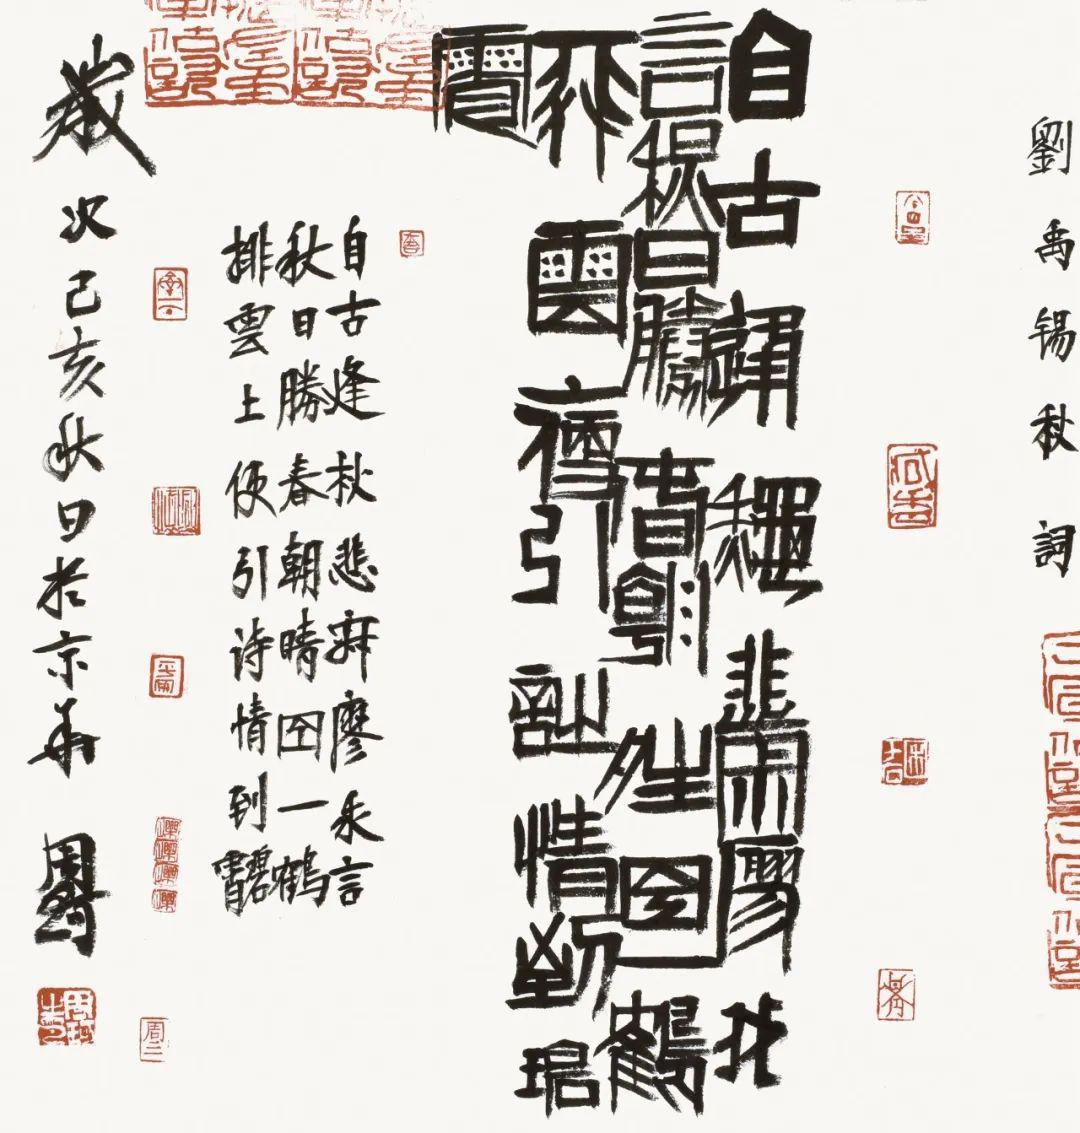 劉禹锡秋詞
自古逢秋悲寂廖我
言秋日勝春朝晴空一鶴
排雲上便引詩情到碧
霄
自古逢秋悲寂廖我言
秋日勝春朝晴空一鶴
排雲上便引诗情到碧霄
歲次己亥秋日於京華